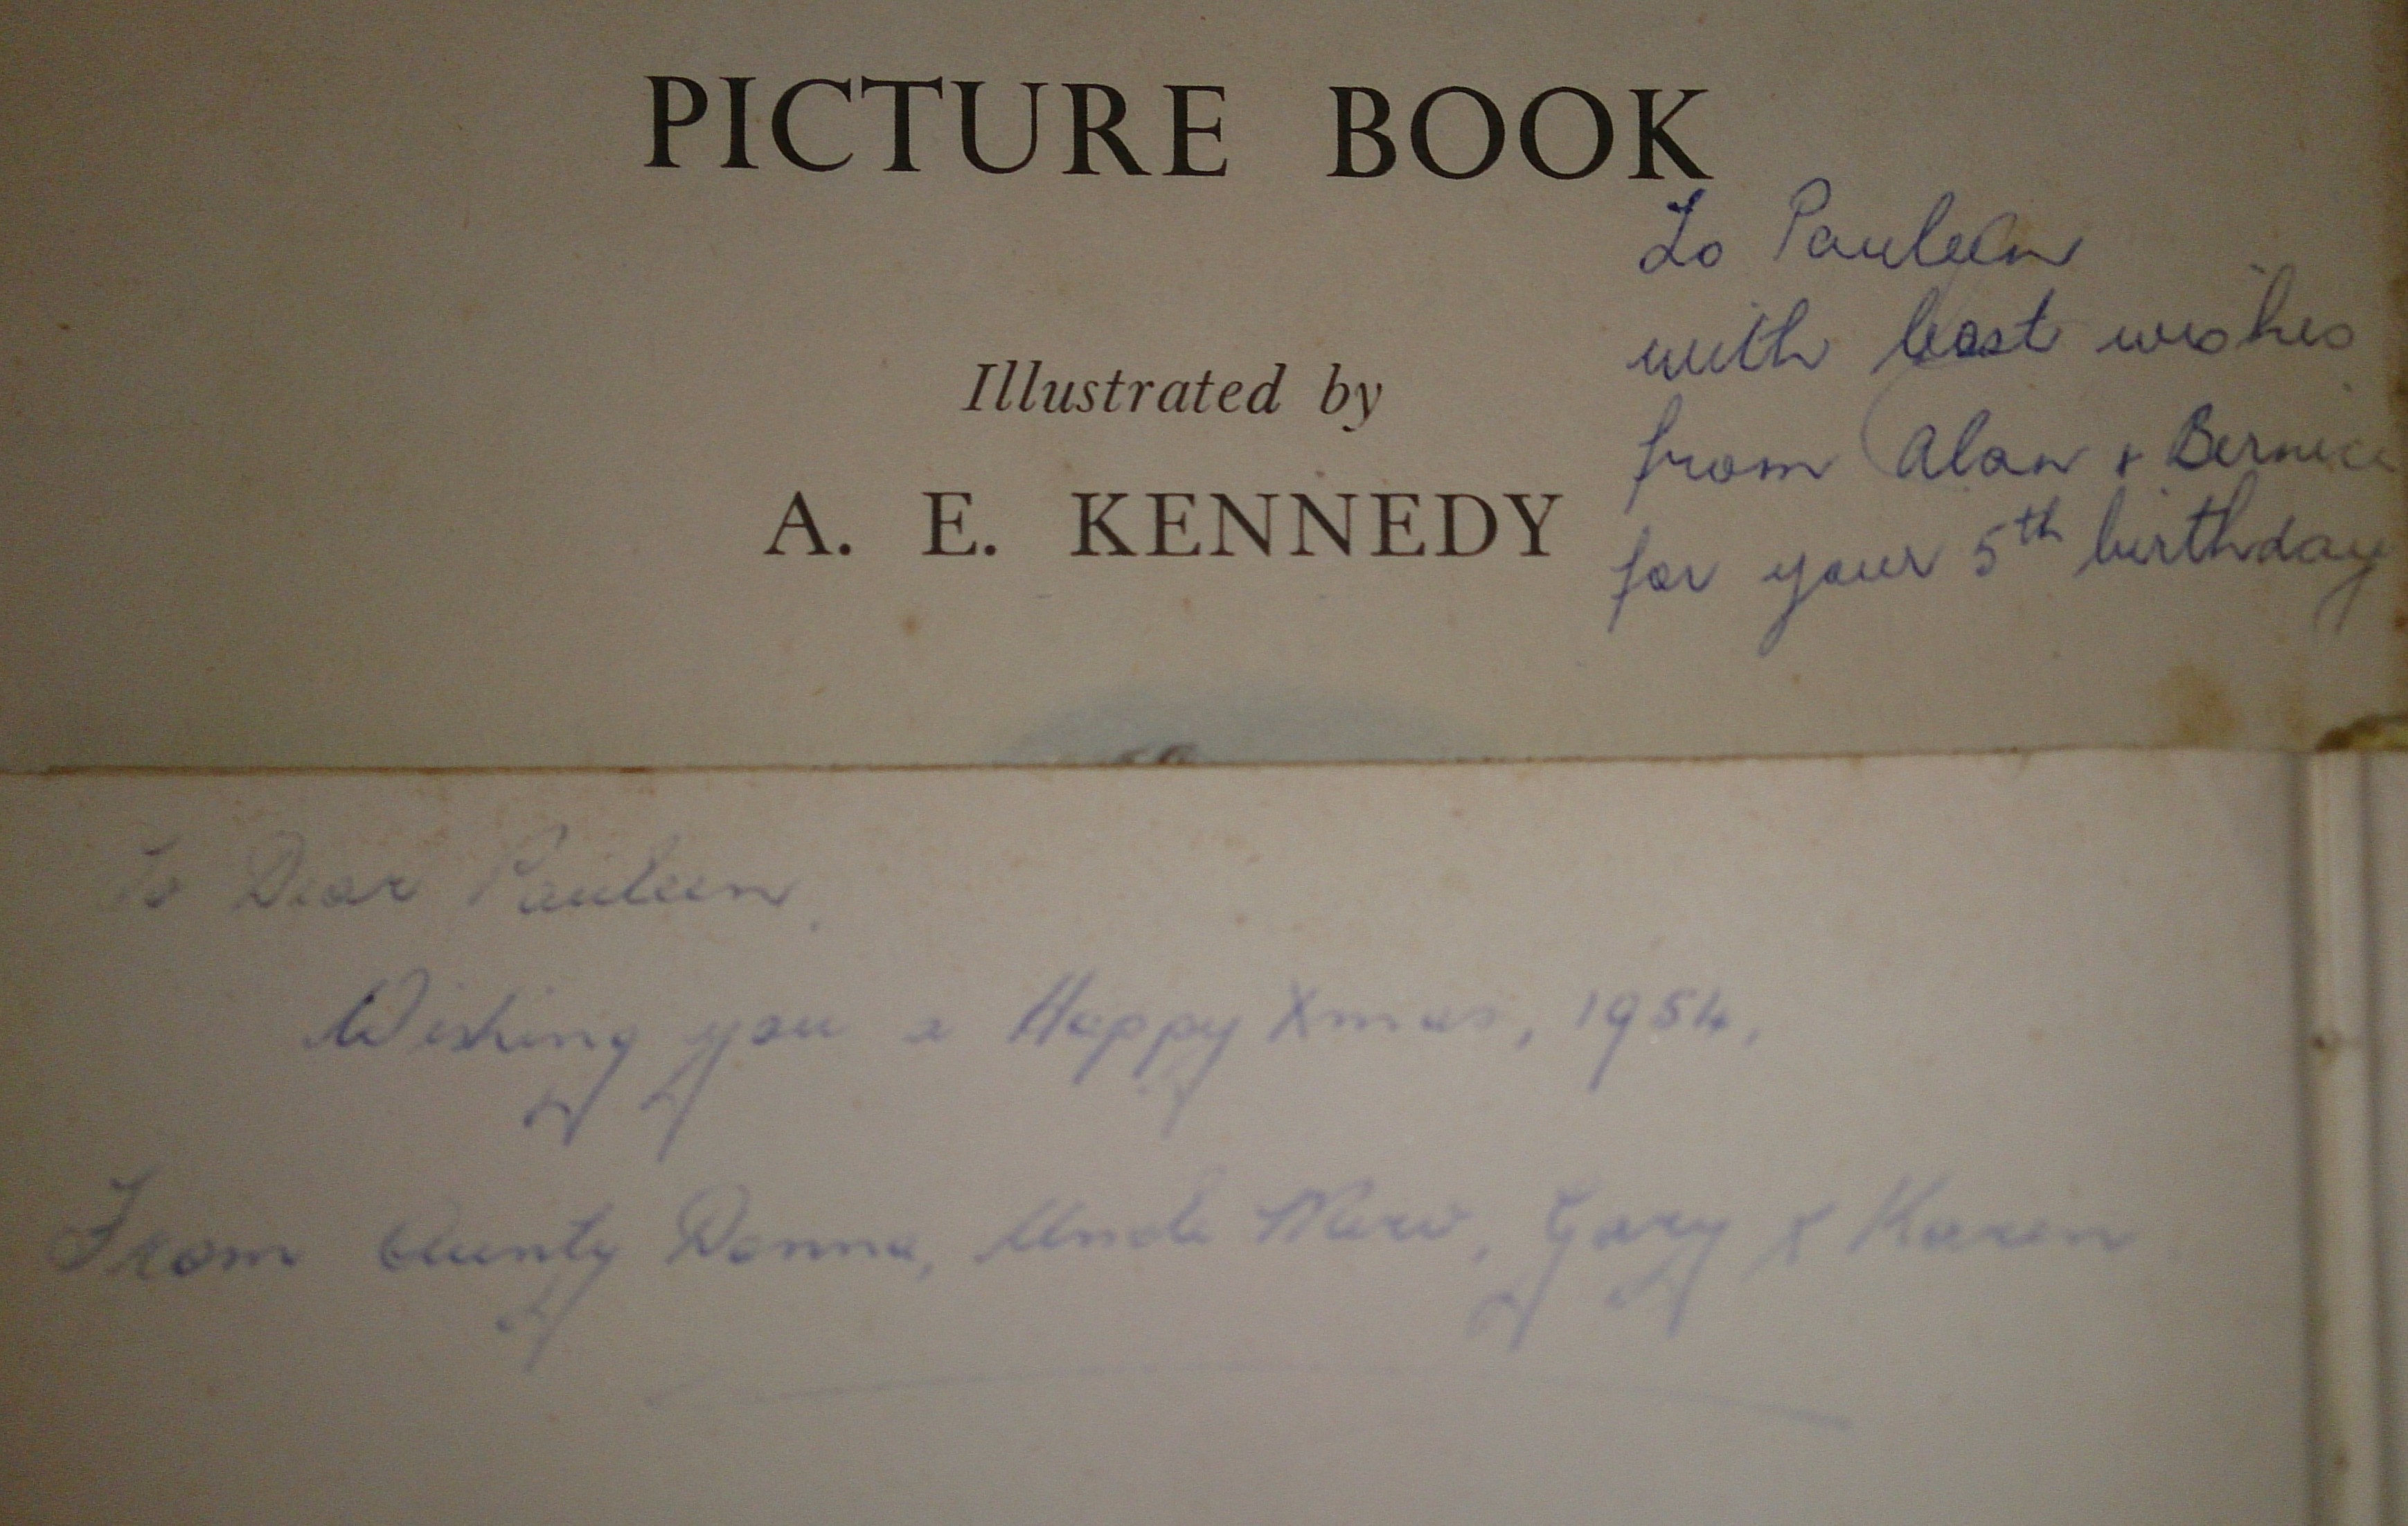 PICTURE BOOK
Illustrated by
A. E. KENNEDY
To Pauleen
with best wishes
from Alan + Bernice
for your 5th birthday
To Dear Pauleen,
Wishing you a Happy Xmas, 1954,
From Aunty Donna, Uncle Merv, Gary & Karen